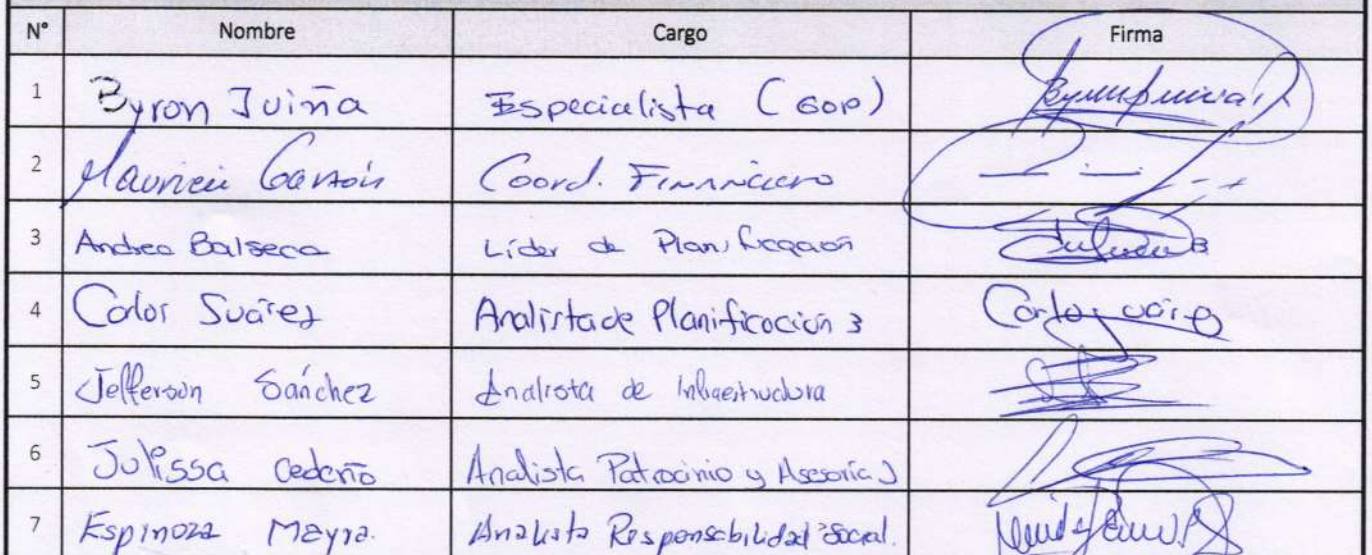 N° Nombre Cargo Firma
1 Byron Iuiña Especialista (GOP)
2 Mauricio Garzón Coord. Financiero
3 Andrea Balseca Líder de Planificación
4 Carlos Suárez Analista de Planificación 3 Carlos Suárez
5 Jefferson Sánchez Analista de Infraestructura
6 Julissa Cedeño Analista Patrocinio y Asesoría J
7 Espinoza Mayra. Analista Responsabilidad Social.